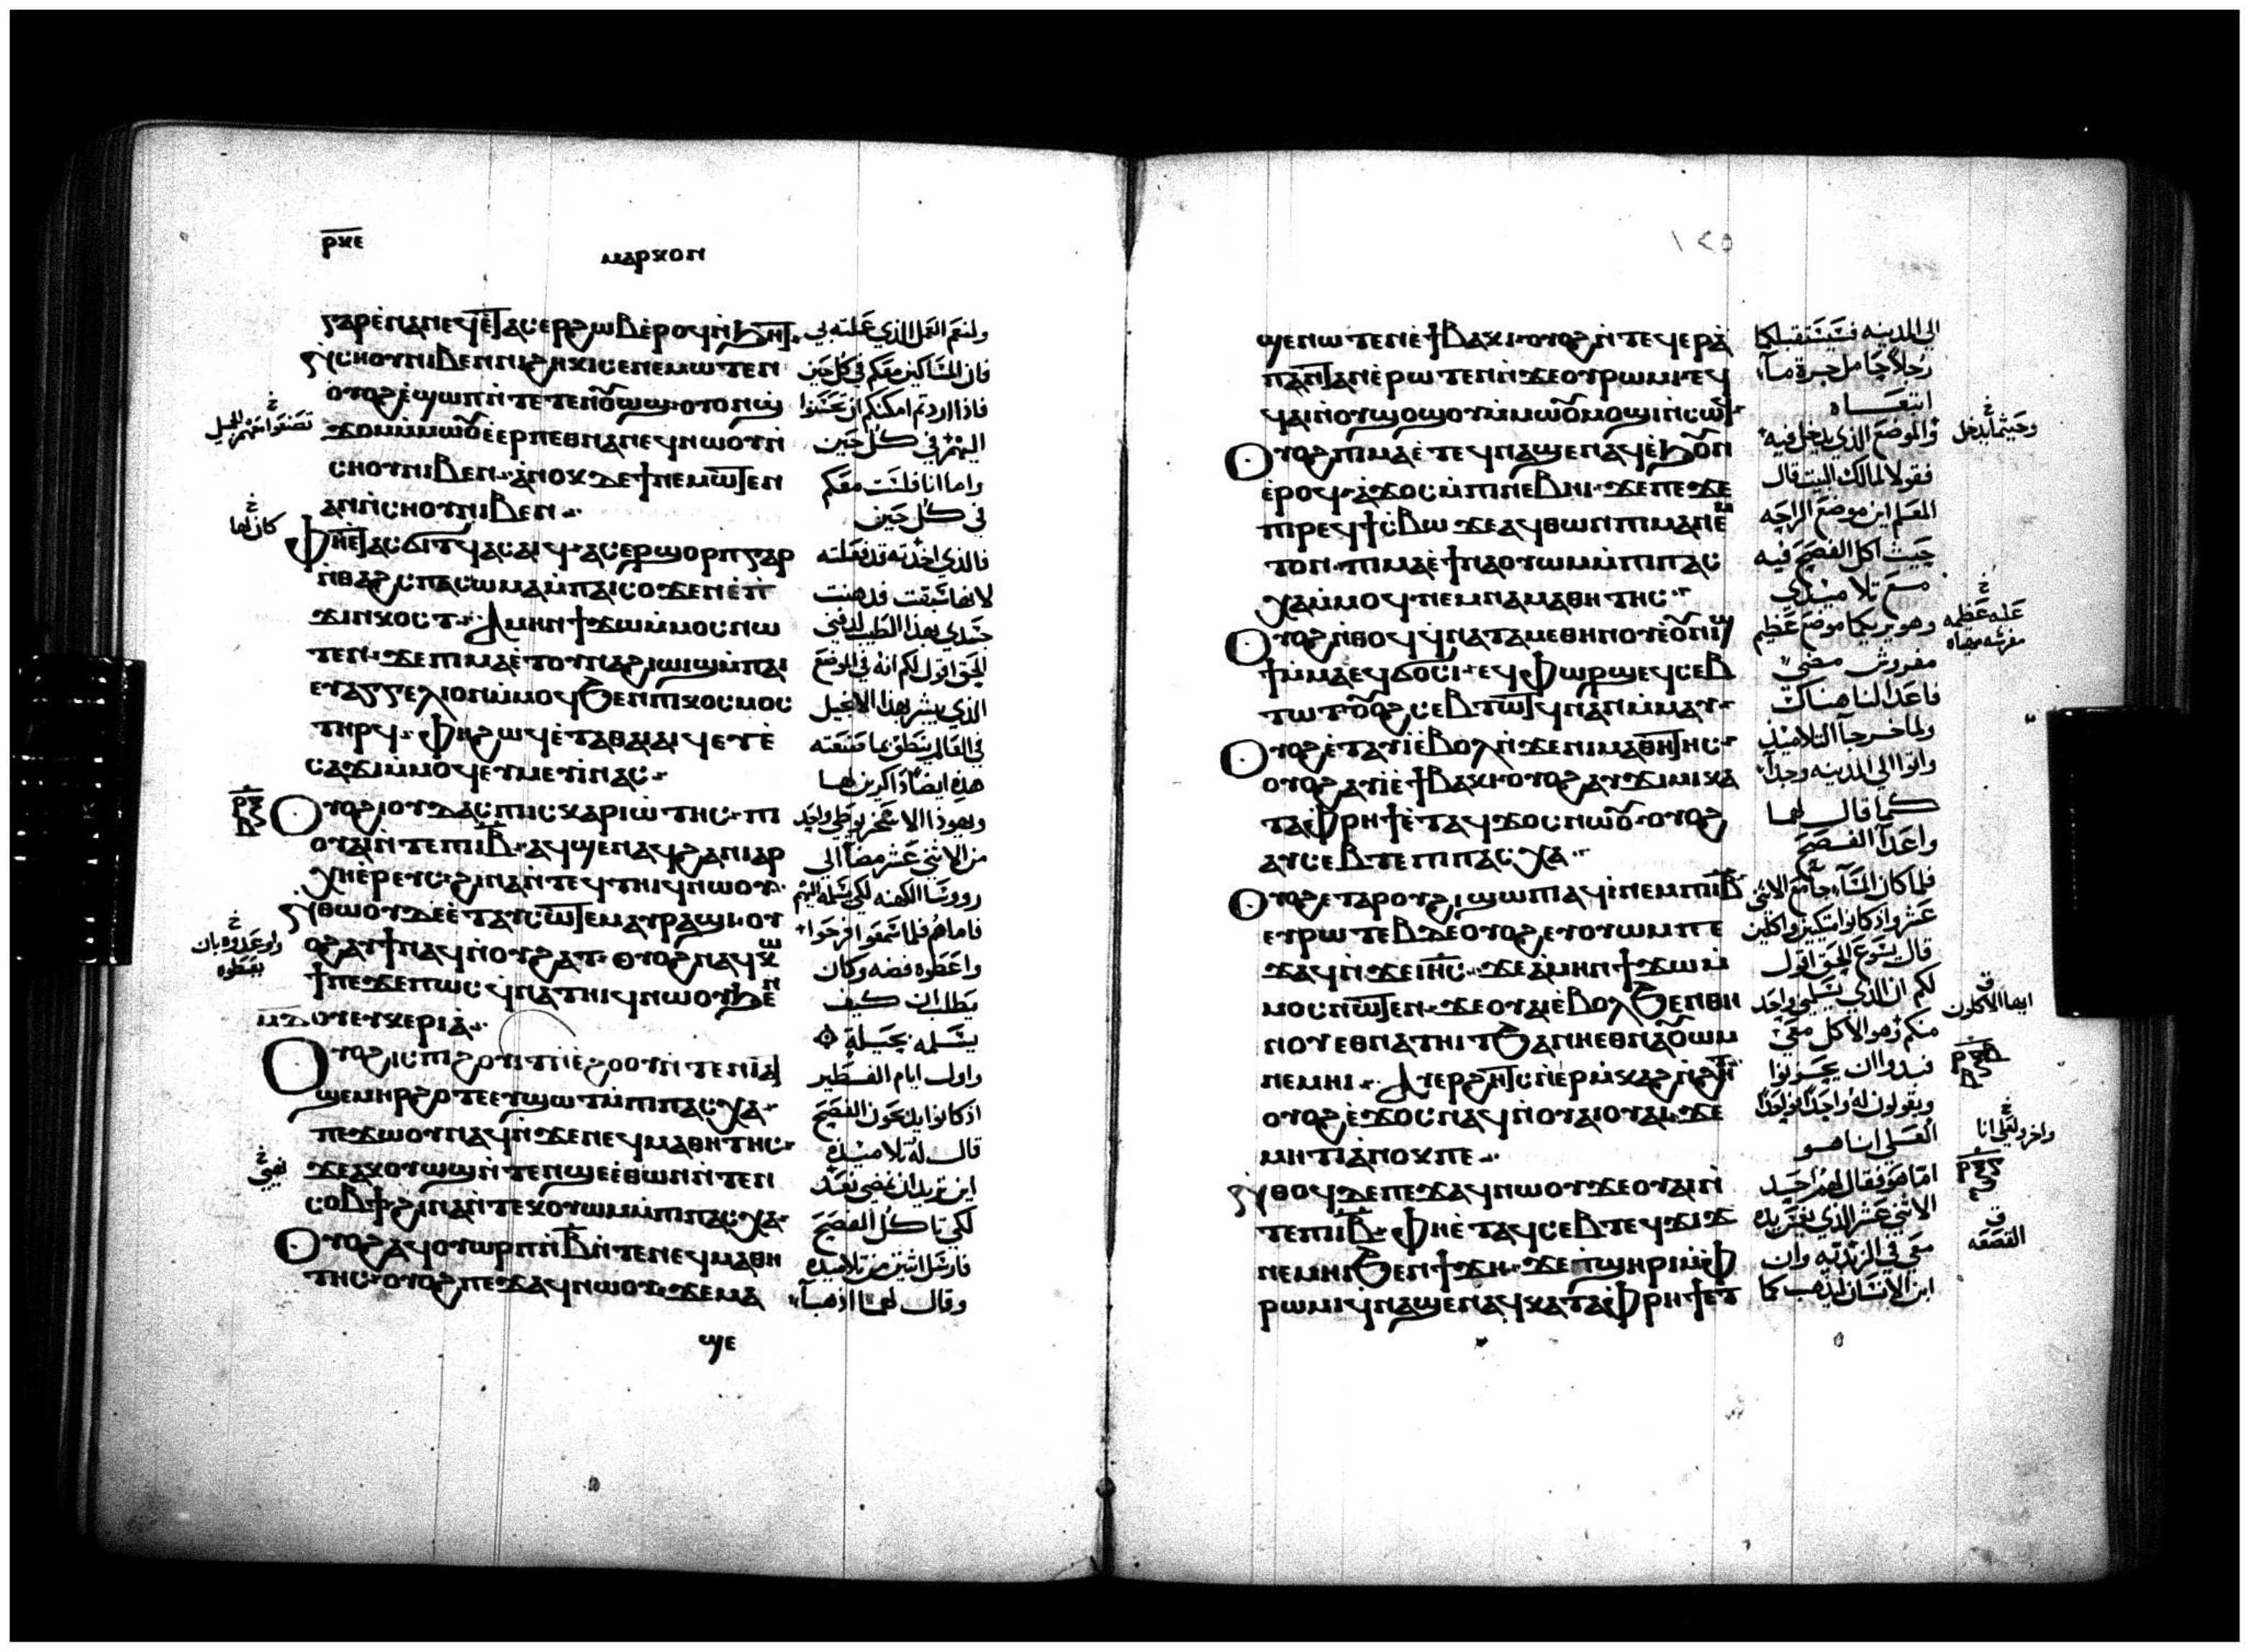 ⲣⲕⲉ
ⲙⲁⲣⲕⲟⲛ
ⲅⲁⲣⲉⲛⲁⲛⲉϥⲉⲧⲁⲥⲉⲣϩⲱⲃⲉⲣⲟϥⲛϧⲏⲧ
ⲛⲥⲏⲟⲩⲛⲓⲃⲉⲛⲛⲓϩⲏⲕⲓⲥⲉⲛⲉⲙⲱⲧⲉⲛ
ⲟⲩⲟϩⲉϣⲱⲡⲛⲧⲉⲧⲉⲛⲟⲩⲱϣ ⲟⲩⲟⲛϣ
ϫⲟⲙⲙⲙⲱⲟⲩⲉⲉⲣⲡⲉⲑⲛⲁⲛⲉϥⲛⲱⲟⲩⲛ
ⲥⲏⲟⲩⲛⲓⲃⲉⲛ ⲁⲛⲟⲕⲇⲉϯⲛⲉⲙⲱⲧⲉⲛ
ⲁⲛⲛⲥⲏⲟⲩⲛⲓⲃⲉⲛ
ⲫⲏⲉⲧⲁⲥϭⲓⲧϥⲁⲥⲁⲓϥ ⲁⲥⲉⲣϣⲟⲣⲡⲅⲁⲣ
ⲛⲑⲁϩⲥⲡⲁⲥⲱⲙⲁⲙⲡⲁⲓⲥⲟϫⲉⲛⲉⲡ
ϫⲓⲛⲕⲟⲥⲧ ⲁⲙⲏⲛϯϫⲱⲙⲙⲟⲥⲛⲱ
ⲧⲉⲛ ϫⲉⲡⲓⲙⲁⲉⲧⲟⲩⲛⲁϩⲓⲱⲓϣⲙⲡⲁⲓ
ⲉⲩⲁⲅⲅⲉⲗⲓⲟⲛⲙⲙⲟϥϧⲉⲛⲡⲓⲕⲟⲥⲙⲟⲥ
ⲧⲏⲣϥ ⲫⲏϩⲱϥⲉⲧⲁⲑⲁⲓⲁⲓϥⲉⲩⲉ
ⲥⲁϫⲓⲙⲙⲟϥⲉⲩⲙⲉⲩⲓⲛⲁⲥ
ⲟⲩⲟϩⲓⲟⲩⲇⲁⲥⲡⲓⲥⲕⲁⲣⲓⲱⲧⲏⲥ ⲡⲓ
ⲟⲩⲁⲓⲛⲧⲉⲡⲓⲓⲃ ⲁϥϣⲉⲛⲁϥϩⲁⲛⲓⲁⲣ
ⲭⲏⲉⲣⲉⲩⲥ ϩⲓⲛⲁⲛⲧⲉϥⲧⲏⲓϥⲛⲱⲟⲩ
ⲛⲑⲱⲟⲩⲇⲉⲉⲧⲁⲩⲥⲱⲧⲉⲙⲁⲩⲣⲁϣⲓ ⲟⲩ
ⲟϩⲁⲩϯⲛⲁϥⲛⲟⲩϩⲁⲧ ⲟⲩⲟϩⲛⲁϥⲕⲱ
ϯⲡⲉϫⲉⲡⲱⲥϥⲛⲁⲧⲏⲓϥⲛⲱⲟⲩϧⲉⲛ
ⲟⲩⲉⲩⲕⲉⲣⲓⲁ
ⲟⲩⲟϩⲓⲥⲡⲓϩⲟⲩⲓⲧⲛⲉϩⲟⲟⲩⲛⲧⲉⲛⲓⲁⲧ
ϣⲉⲙⲏⲣϩⲟⲧⲉⲉⲩϣⲱⲧⲙⲡⲓⲡⲁⲥⲭⲁ
ⲡⲉϫⲱⲟⲩⲛⲁϥⲛϫⲉⲛⲉϥⲙⲁⲑⲏⲧⲏⲥ
ϫⲉⲁⲕⲟⲩⲱϣⲛⲧⲉⲛϣⲉⲉⲑⲱⲛⲛⲧⲉⲛ
ⲥⲟⲃϯϩⲓⲛⲁⲛⲧⲉⲕⲟⲩⲱⲙⲙⲡⲓⲡⲁⲥⲭⲁ
ⲟⲩⲟϩⲁϥⲟⲩⲱⲣⲡⲛⲃⲛⲧⲉⲛⲉϥⲙⲁⲑⲏ
ⲧⲏⲥ ⲟⲩⲟϩⲡⲉϫⲁϥⲛⲱⲟⲩ ϫⲉⲙⲁ
ϣⲉ
ولنعم العمل الذي عملته بي
فان المساكين معكم في كل حين
فاذا اردتم امكنكم ان تحسنوا
اليهم في كل حين
واما انا فلست معكم
في كل حين
فالذي اخذته قد فعلته
لانها سبقت فدهنت
جسدي بهذا الطيب لدفني
الحق اقول لكم انه في الموضع
الذي يبشر بهذا الانجيل
في العالم ينطق بما صنعته
هذه ايضا ذاكرين لها
ويهودا الاسخريوطي واحد
من الاثني عشر مضا الى
رووسا الكهنه لكي يسلمه اليهم
فاما هم فلما سمعوا فرحوا
واعطوه فضه وكان
يطلب ان كيف
يسلمه بحيلة
واول ايام الفطير
اذ كانوا يذبحون الفصح
قال له تلاميذه
اين تريد ان نمضي نعد
لكي تاكل الفصح
فارسل اثنين من تلاميذه
وقال لهما اذهبا
تصنعوا معهم الجميل
كان لها
ⲣⲝ
ⲃ
واوعدوه بان
يعطوه
١٢٥
ϣⲉⲛⲱⲧⲉⲛⲉϯⲃⲁⲕⲓ ⲟⲩⲟϩⲛⲧⲉϥⲉⲣⲁ
ⲡⲁⲛⲧⲁⲛⲉⲣⲱⲧⲉⲛⲛϫⲉⲟⲩⲣⲱⲙⲓ ⲉϥ
ϥⲁⲓⲛⲟⲩϣⲟϣⲟⲩⲙⲙⲱⲟⲩⲙⲟϣⲓⲛⲥⲱϥ
ⲟⲩⲟϩⲡⲓⲙⲁⲉⲧⲉϥⲛⲁϣⲉⲛⲁϥⲉϧⲟⲩⲛ
ⲉⲣⲟϥ ⲁϫⲟⲥⲙⲡⲓⲛⲉⲃⲏⲓ ϫⲉⲡⲉϫⲉ
ⲡⲓⲣⲉϥϯⲥⲃⲱ ϫⲉⲁϥⲑⲱⲛⲡⲓⲙⲁⲛⲉⲙ
ⲧⲟⲛ ⲡⲓⲙⲁⲉϯⲛⲁⲟⲩⲱⲙⲙⲡⲓⲡⲁⲥ
ⲭⲁⲙⲙⲟϥ ⲛⲉⲙⲛⲁⲙⲁⲑⲏⲧⲏⲥ
ⲟⲩⲟϩⲛⲑⲟϥϥⲛⲁⲧⲁⲙⲉⲑⲏⲛⲟⲩⲉⲟⲩⲛⲓϣ
ϯⲙⲙⲁⲉϥϭⲟⲥⲓ ⲉϥⲫⲱⲣϣⲉϥⲥⲉⲃ
ⲧⲱⲧ ⲟⲩⲟϩⲥⲉⲃⲧⲱⲧϥⲛⲁⲛⲙⲙⲁⲩ
ⲟⲩⲟϩⲉⲧⲁⲩⲓⲉⲃⲟⲗⲛϫⲉⲛⲓⲙⲁⲑⲏⲧⲏⲥ
ⲟⲩⲟϩⲁⲩⲓⲉϯⲃⲁⲕⲓ ⲟⲩⲟϩⲁⲩϫⲓⲙⲓⲕⲁ
ⲧⲁⲫⲣⲏϯⲉⲧⲁϥϫⲟⲥⲛⲱⲟⲩ ⲟⲩⲟϩ
ⲁⲩⲥⲉⲃⲧⲉⲡⲓⲡⲁⲥⲭⲁ
ⲟⲩⲟϩⲉⲧⲁⲣⲟⲩϩⲓϣⲱⲡⲓⲁϥⲓⲛⲉⲙⲡⲓⲓⲃ
ⲉⲩⲣⲱⲧⲉⲃⲇⲉⲟⲩⲟϩⲉⲩⲟⲩⲱⲙⲡⲉ
ϫⲁϥⲛϫⲉⲓⲏⲥ ϫⲉⲁⲙⲏⲛϯϫⲱⲙ
ⲙⲟⲥⲛⲱⲧⲉⲛ ϫⲉⲟⲩⲁⲓⲉⲃⲟⲗϧⲉⲛⲑⲏ
ⲛⲟⲩⲉⲑⲛⲁⲧⲏⲓⲧϧⲁⲛⲏⲉⲑⲛⲁⲟⲩⲱⲙ
ⲛⲉⲙⲏⲓ ⲁⲩⲉⲣϩⲏⲧⲥⲛⲉⲣⲙⲕⲁϩⲛϩⲏⲧ
ⲟⲩⲟϩⲉϫⲟⲥⲛⲁϥⲛⲟⲩⲁⲓⲟⲩⲁⲓ ϫⲉ
ⲙⲏⲧⲓⲁⲛⲟⲕⲡⲉ
ⲛⲑⲟϥⲇⲉⲡⲉϫⲁϥⲛⲱⲟⲩϫⲉⲟⲩⲁⲓⲛ
ⲧⲉⲡⲓⲓⲃ ⲫⲏⲉⲧⲁϥⲥⲉⲃⲧⲉϥϫⲓϫ
ⲛⲉⲙⲏⲓϧⲉⲛϯϫⲏ ϫⲉⲡϣⲏⲣⲓⲙⲫ
ⲣⲱⲙⲓϥⲛⲁϣⲉⲛⲁϥⲕⲁⲧⲁⲫⲣⲏϯⲉⲧ
الى المدينه فسيستقبلكما
رجلا حامل جرة ماء
اتبعاه
والموضع الذي يدخل فيه
فقولا لمالك البيت قال
المعلم اين موضع الراحه
حيث اكل الفصح فيه
مع تلاميذي
وهو يريكما موضع عظيم
مفروش مضي
فاعدا لنا هناك
ولما خرجا التلاميذ
واتوا الى المدينه وجدا
كما قال لهما
واعدا الفصح
فلما كان المساء جا مع الاثني
عشر واذ كانوا متكيين واكلين
قال يسوع الحق اقول
لكم ان الذي يسلمني واحد
منكم وهو الاكل معي
فبدوا ان يحزنوا
ويقولون له واحدا فواحدا
لعلى انا هو
اما هو فقال لهم احد
الاثني عشر الذي يغمس يده
معي في الزبديه وان
ابن الانسان ليذهب كما
وحيثما يدخل
عليه عظيمه
مفرشه مهياه
ايها الاكلون
ⲣⲝⲇ
ⲃ
واخر ولعلي انا
ⲣⲝⲅ
القصعه